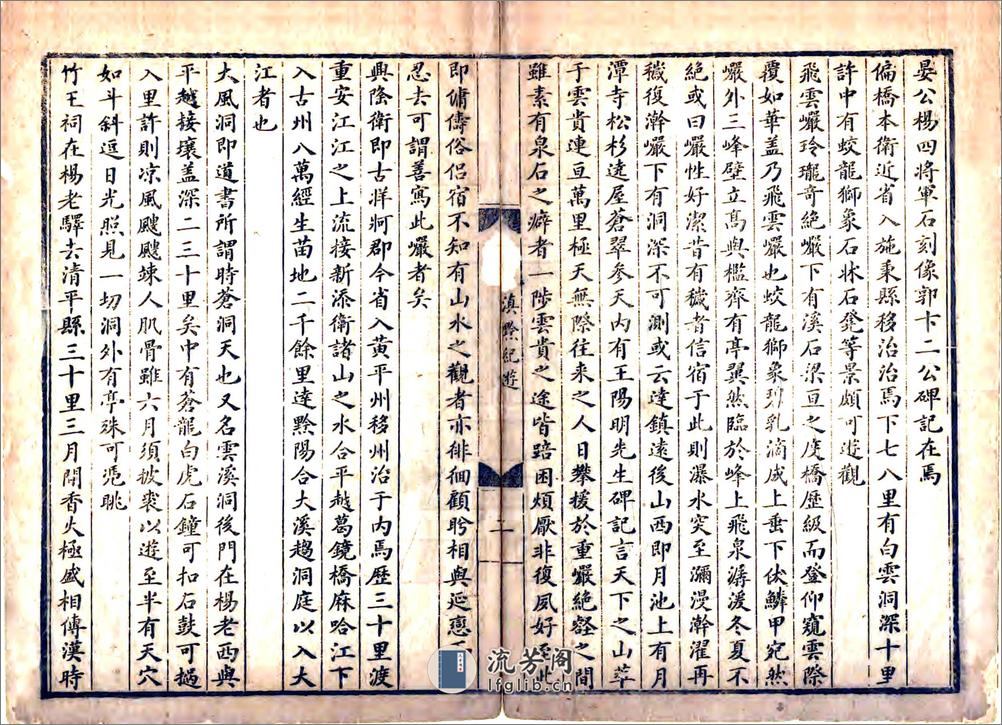 晏公楊四將軍石刻像郭卞二公碑記在焉
偏橋本衛近省入施秉縣移治治焉下七八里有白雲洞深十里
許中有蛟龍獅象石牀石凳等景頗可遊觀
飛雲巖玲瓏奇絕巖下有溪石梁亘之度橋歷級而登仰窺雲際
覆如華蓋乃飛雲巖也蛟龍獅象列乳滴成上垂下伏鱗甲宛然
巖外三峰壁立高與檻齊有亭翼然臨於峰上飛泉潺湲冬夏不
絕或曰巖性好潔昔有穢者信宿于此則瀑水突至瀰漫澣濯再
穢復澣巖下有洞深不可測或云達鎮遠後山西即月池上有月
潭寺松杉遶屋蒼翠參天內有王陽明先生碑記言天下之山萃
于雲貴連亘萬里極天無際往來之人日攀援於重巖絕壑之間
雖素有泉石之癖者一陟雲貴之途皆踣困煩厭非復夙好至此
即傭儔俗侶宿不知有山水之觀者亦徘徊顧盻相與延戀
忍去可謂善寫此巖者矣
興隆衛即古牂牁郡今省入黃平州移州治于內焉歷三十里渡
重安江江之上流接新添衛諸山之水合平越葛鏡橋麻哈江下
入古州八萬經生苗地二千餘里達黔陽合大溪趨洞庭以入大
江者也
大風洞即道書所謂時蒼洞天也又名雲溪洞後門在楊老西與
平越接壤蓋深二三十里矣中有蒼龍白虎石鐘可扣石鼓可撾
入里許則凉風颼颼竦人肌骨雖六月須披裘以遊至半有天穴
如斗斜逗日光照見一切洞外有亭殊可憑眺
竹王祠在楊老驛去清平縣三十里三月間香火極盛相傳漢時
滇黔紀遊
二
流芳阁
lfglib.cn